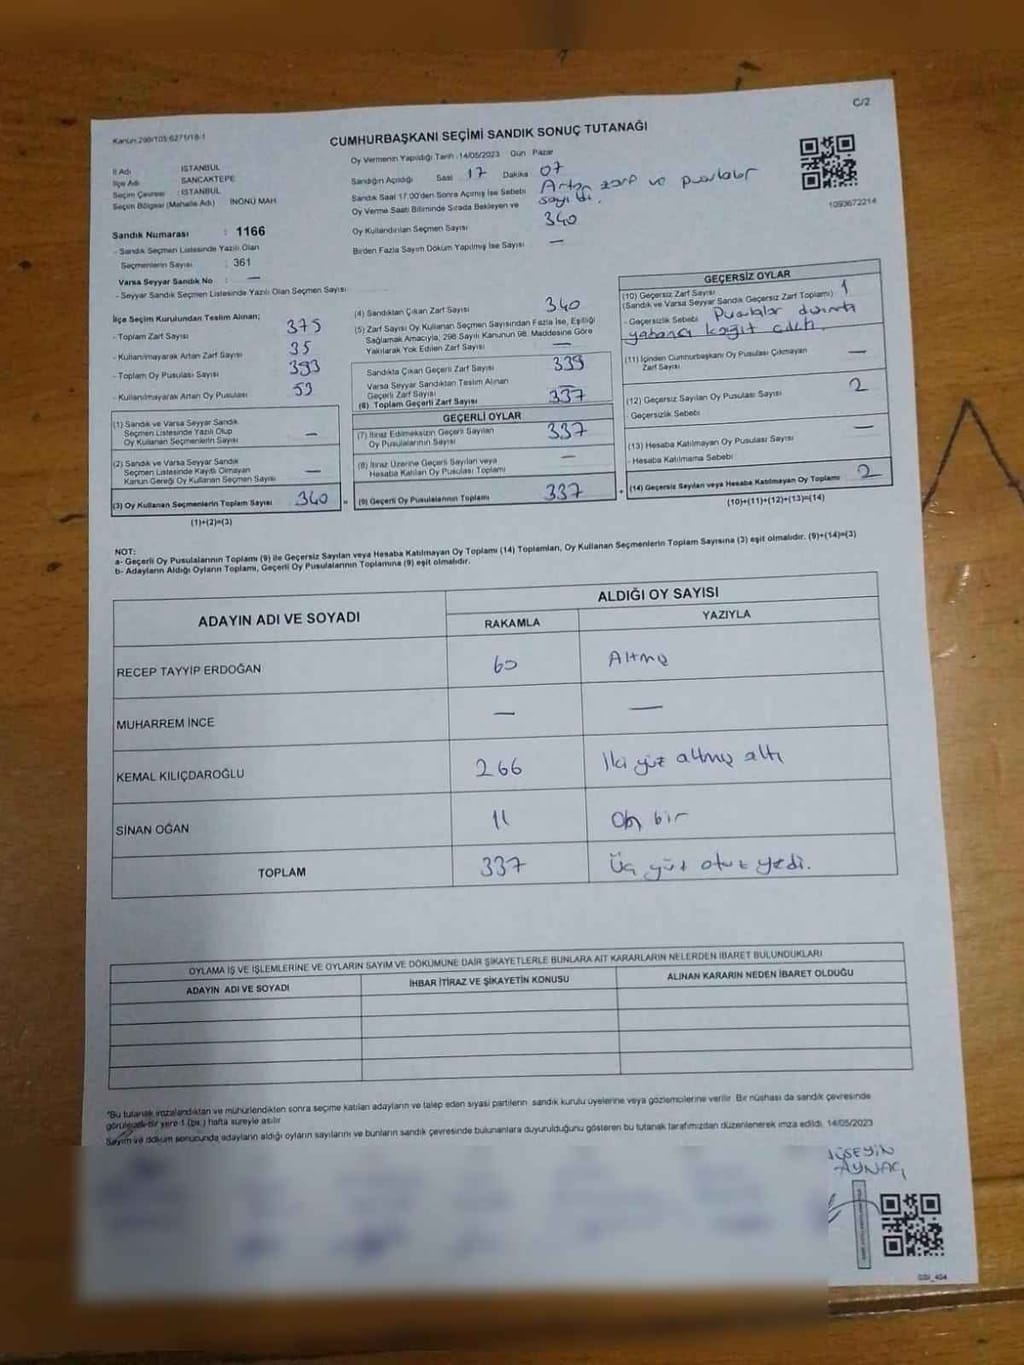 C/2
Kanun:298/105:6271/18-1
CUMHURBAŞKANI SEÇİMİ SANDIK SONUÇ TUTANAĞI
İl Adı : İSTANBUL
İlçe Adı : SANCAKTEPE
Seçim Çevresi : İSTANBUL
Seçim Bölgesi (Mahalle Adı) : İNÖNÜ MAH.
Oy Vermenin Yapıldığı Tarih :14/05/2023 Gün Pazar
Sandığın Açıldığı Saat 17 Dakika 07
Sandık Saat 17:00'den Sonra Açılmış İse Sebebi Artan zarf ve pusulalar
sayıldı.
Oy Verme Saati Bitiminde Sırada Bekleyen ve
Oy Kullandırılan Seçmen Sayısı 340
Birden Fazla Sayım Döküm Yapılmış İse Sayısı —
1093672214
Sandık Numarası : 1166
- Sandık Seçmen Listesinde Yazılı Olan
Seçmenlerin Sayısı : 361
Varsa Seyyar Sandık No : —
- Seyyar Sandık Seçmen Listesinde Yazılı Olan Seçmen Sayısı:
İlçe Seçim Kurulundan Teslim Alınan;
- Toplam Zarf Sayısı 375
- Kullanılmayarak Artan Zarf Sayısı 35
- Toplam Oy Pusulası Sayısı 393
- Kullanılmayarak Artan Oy Pusulası 53
(1) Sandık ve Varsa Seyyar Sandık
Seçmen Listesinde Yazılı Olup
Oy Kullanan Seçmenlerin Sayısı —
(2) Sandık ve Varsa Seyyar Sandık
Seçmen Listesinde Kayıtlı Olmayan
Kanun Gereği Oy Kullanan Seçmen Sayısı —
(3) Oy Kullanan Seçmenlerin Toplam Sayısı 340 =
(1)+(2)=(3)
(4) Sandıktan Çıkan Zarf Sayısı 340
(5) Zarf Sayısı Oy Kullanan Seçmen Sayısından Fazla İse, Eşitliği
Sağlamak Amacıyla, 298 Sayılı Kanunun 98. Maddesine Göre
Yakılarak Yok Edilen Zarf Sayısı —
Sandıkta Çıkan Geçerli Zarf Sayısı 339
Varsa Seyyar Sandıktan Teslim Alınan
Geçerli Zarf Sayısı —
(6) Toplam Geçerli Zarf Sayısı 337
GEÇERLİ OYLAR
(7) İtiraz Edilmeksizin Geçerli Sayılan
Oy Pusulalarının Sayısı 337
(8) İtiraz Üzerine Geçerli Sayılan veya
Hesaba Katılan Oy Pusulası Toplamı —
(9) Geçerli Oy Pusulalarının Toplamı 337 +
GEÇERSİZ OYLAR
(10) Geçersiz Zarf Sayısı
(Sandık ve Varsa Seyyar Sandık Geçersiz Zarf Toplamı) 1
- Geçersizlik Sebebi Pusulalar dışında
yabancı kağıt çıktı.
(11) İçinden Cumhurbaşkanı Oy Pusulası Çıkmayan
Zarf Sayısı —
(12) Geçersiz Sayılan Oy Pusulası Sayısı 2
- Geçersizlik Sebebi
(13) Hesaba Katılmayan Oy Pusulası Sayısı —
- Hesaba Katılmama Sebebi
(14) Geçersiz Sayılan veya Hesaba Katılmayan Oy Toplamı 2
(10)+(11)+(12)+(13)=(14)
NOT:
a- Geçerli Oy Pusulalarının Toplamı (9) ile Geçersiz Sayılan veya Hesaba Katılmayan Oy Toplamı (14) Toplamları, Oy Kullanan Seçmenlerin Toplam Sayısına (3) eşit olmalıdır. (9)+(14)=(3)
b- Adayların Aldığı Oyların Toplamı, Geçerli Oy Pusulalarının Toplamına (9) eşit olmalıdır.
ADAYIN ADI VE SOYADI
ALDIĞI OY SAYISI
RAKAMLA YAZIYLA
RECEP TAYYİP ERDOĞAN 60 Altmış
MUHARREM İNCE — —
KEMAL KILIÇDAROĞLU 266 İki yüz altmış altı
SİNAN OĞAN 11 On bir
TOPLAM 337 Üç yüz otuz yedi.
OYLAMA İŞ VE İŞLEMLERİNE VE OYLARIN SAYIM VE DÖKÜMÜNE DAİR ŞİKAYETLERLE BUNLARA AİT KARARLARIN NELERDEN İBARET BULUNDUKLARI
ADAYIN ADI VE SOYADI İHBAR İTİRAZ VE ŞİKAYETİN KONUSU ALINAN KARARIN NEDEN İBARET OLDUĞU
*Bu tutanak imzalandıktan ve mühürlendikten sonra seçime katılan adayların ve talep eden siyasi partilerin sandık kurulu üyelerine veya gözlemcilerine verilir. Bir nüshası da sandık çevresinde
görülecek bir yere 1 (bir) hafta süreyle asılır.
Sayım ve döküm sonucunda adayların aldığı oyların sayılarını ve bunların sandık çevresinde bulunanlara duyurulduğunu gösteren bu tutanak tarafımızdan düzenlenerek imza edildi. 14/05/2023
AYNAÇ